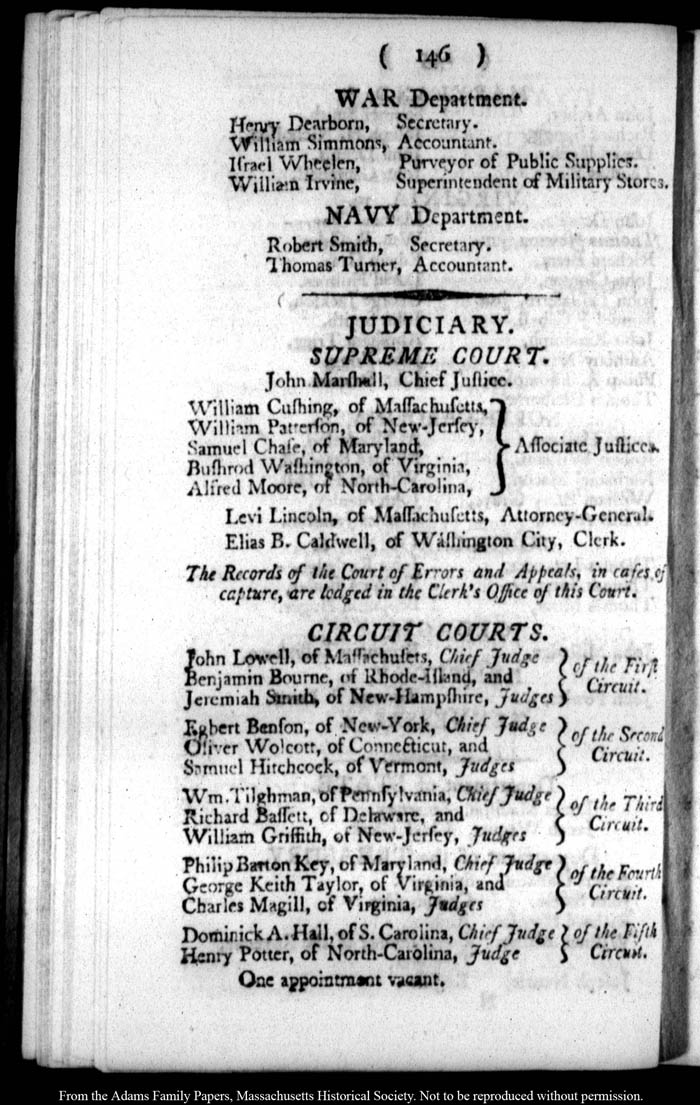 ( 146 )
WAR Department.
Henry Dearborn, Secretary.
William Simmons, Accountant.
Iſrael Wheelen, Purveyor of Public Supplies.
William Irvine, Superintendent of Military Stores.
NAVY Department.
Robert Smith, Secretary.
Thomas Turner, Accountant.
JUDICIARY.
SUPREME COURT.
John Marſhall, Chief Juſtice.
William Cuſhing, of Maſſachuſetts,
William Patterſon, of New-Jerſey,
Samuel Chaſe, of Maryland, } Aſſociate Juſtices.
Buſhrod Waſhington, of Virginia,
Alfred Moore, of North-Carolina,
Levi Lincoln, of Maſſachuſetts, Attorney-General.
Elias B. Caldwell, of Waſhington City, Clerk.
The Records of the Court of Errors and Appeals, in caſes of
capture, are lodged in the Clerk's Office of this Court.
CIRCUIT COURTS.
John Lowell, of Maſſachuſets, Chief Judge } of the Firſt
Benjamin Bourne, of Rhode-Iſland, and
Jeremiah Smith, of New-Hampſhire, Judges } Circuit.
Egbert Benſon, of New-York, Chief Judge } of the Second
Oliver Wolcott, of Connecticut, and
Samuel Hitchcock, of Vermont, Judges } Circuit.
Wm. Tilghman, of Pennſylvania, Chief Judge } of the Third
Richard Baſſett, of Delaware, and
William Griffith, of New-Jerſey, Judges } Circuit.
Philip Barton Key, of Maryland, Chief Judge } of the Fourth
George Keith Taylor, of Virginia, and
Charles Magill, of Virginia, Judges } Circuit.
Dominick A. Hall, of S. Carolina, Chief Judge } of the Fifth
Henry Potter, of North-Carolina, Judge } Circuit.
One appointment vacant.
From the Adams Family Papers, Massachusetts Historical Society. Not to be reproduced without permission.